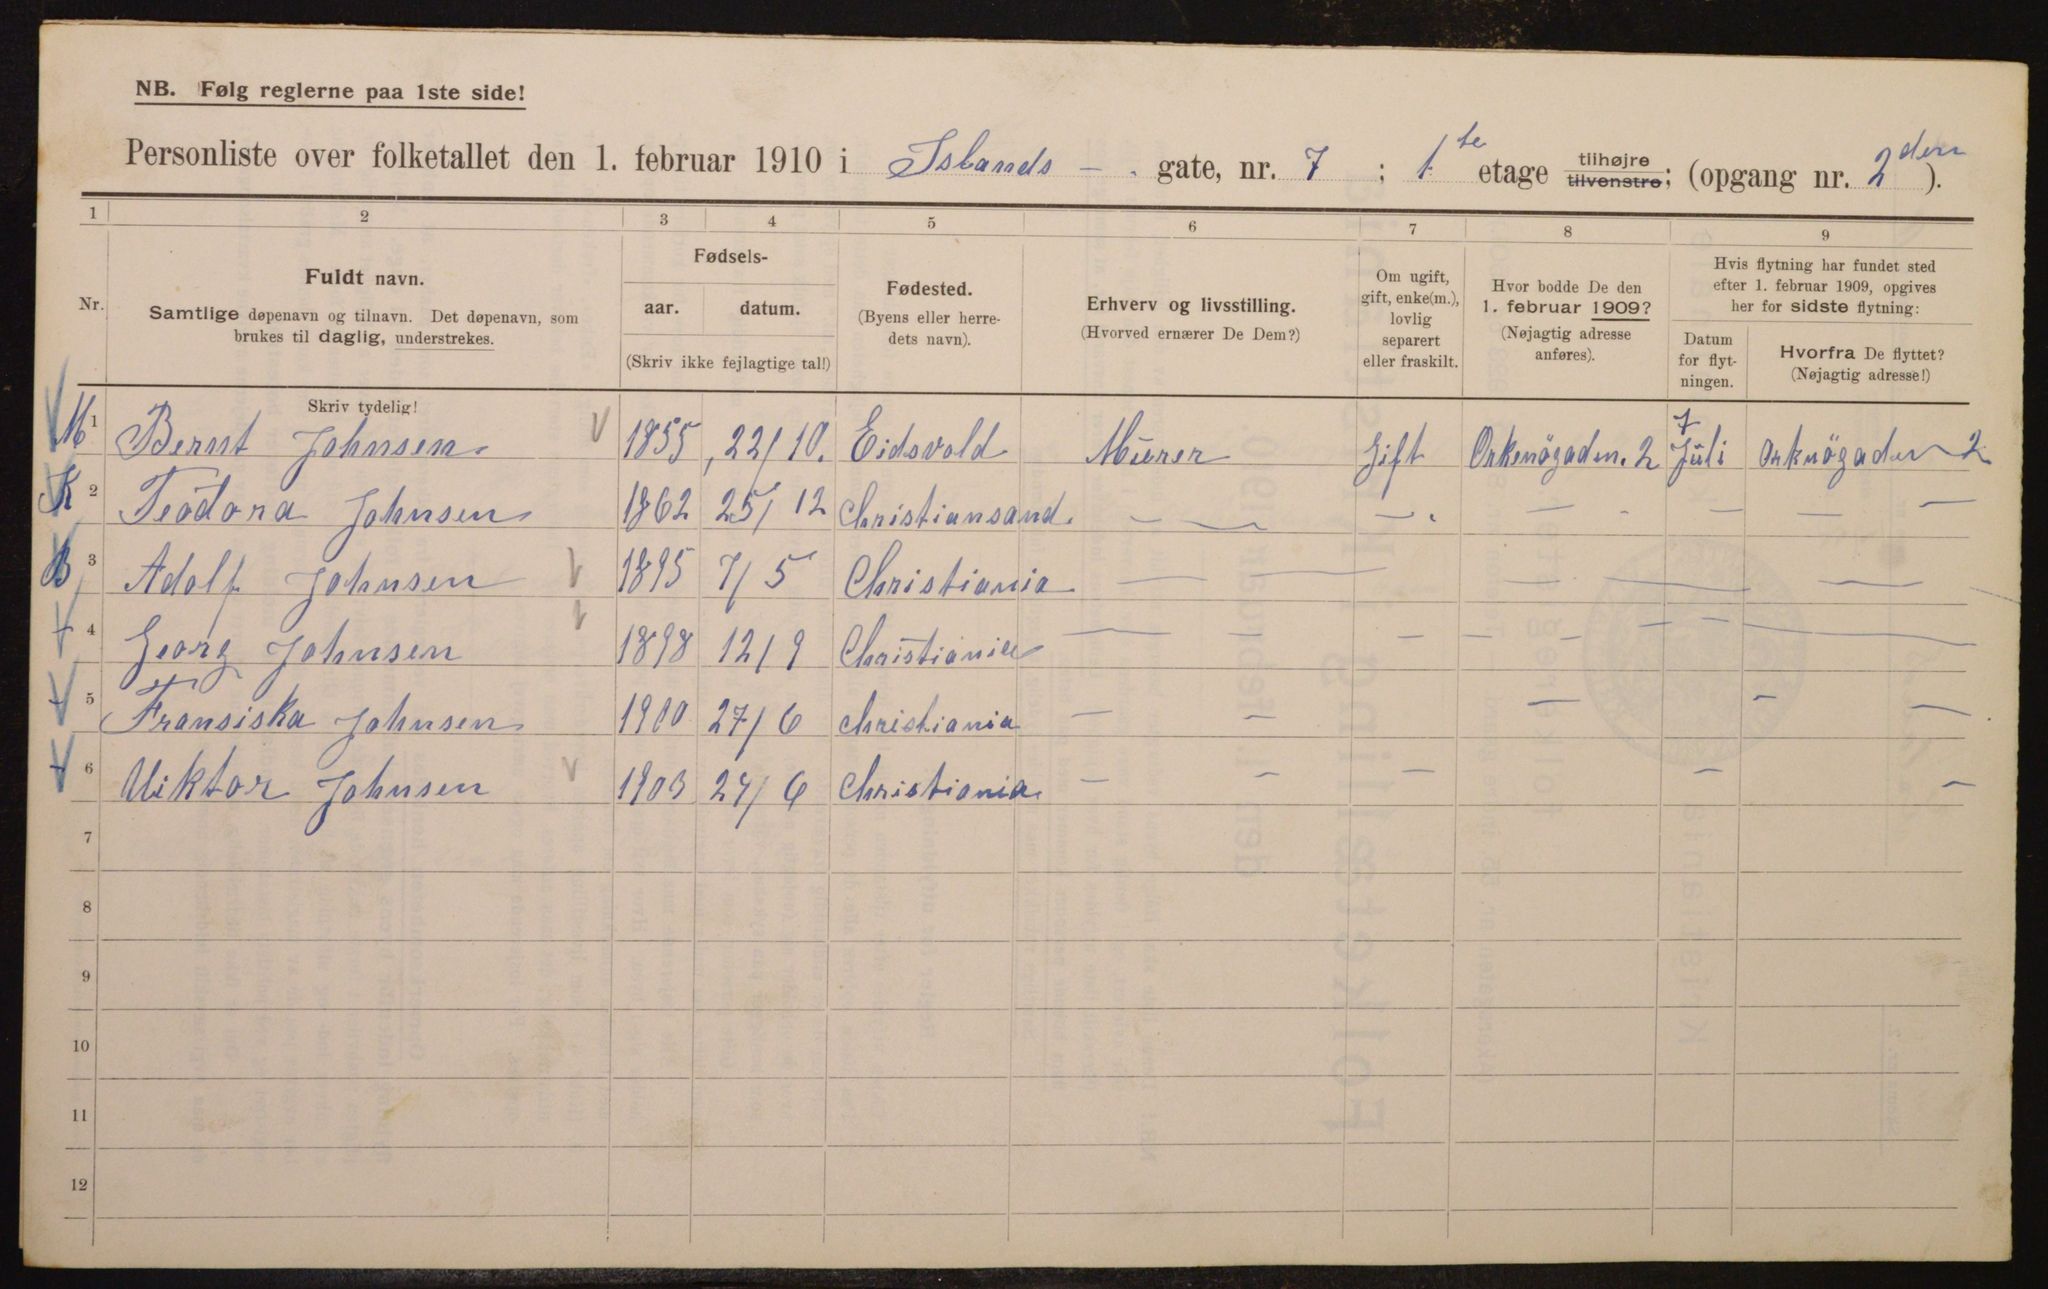 NB. Følg reglerne paa 1ste side!
Personliste over folketallet den 1. februar 1910 i Islands - gate, nr. 7 ; 1.te etage tilhøjre tilvenstre; (opgang nr. 2den ).
1 2 3 4 5 6 7 8 9
Nr.
Fuldt navn.
Samtlige døpenavn og tilnavn. Det døpenavn, som
brukes til daglig, understrekes.
Skriv tydelig!
Fødsels-
aar. datum.
(Skriv ikke fejlagtige tal!)
Fødested.
(Byens eller herre-
dets navn).
Erhverv og livsstilling.
(Hvorved ernærer De Dem?)
Om ugift,
gift, enke(m.),
lovlig
separert
eller fraskilt.
Hvor bodde De den
1. februar 1909?
(Nøjagtig adresse
anføres).
Hvis flytning har fundet sted
efter 1. februar 1909, opgives
her for sidste flytning:
Datum
for flyt-
ningen.
Hvorfra De flyttet?
(Nøjagtig adresse!)
M 1 Bernt Johnsen 1855 22/10. Eidsvold Murer Gift Orkenögaden. 2 7 Juli Orknögaden 2
K 2 Teodora Johnsen 1862 25/12 Christiansand. — — — — — —
B 3 Adolf Johnsen 1895 7/5 Christiania — — — — —
4 Georg Johnsen 1898 12/9 Christiania — — — — — — —
5 Fransiska Johnsen 1900 27/6 Christiania — — — — —
6 Viktor Johnsen 1903 27/6 Christiania — — — — —
7
8
9
10
11
12